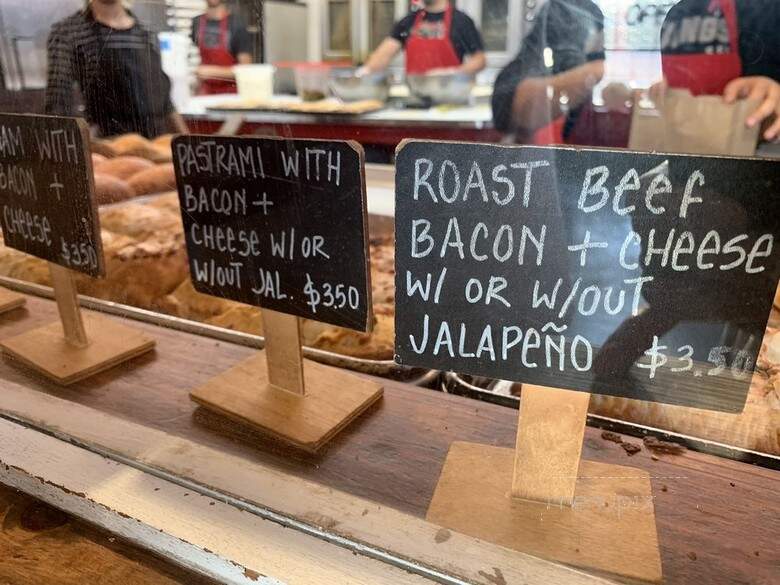 AM WITH
BACON +
CHEESE $350
PASTRAMI WITH
BACON +
CHEESE W/ OR
W/OUT JAL. $350
ROAST BEEF
BACON + CHEESE
W/ OR W/OUT
JALAPEÑO $3.50